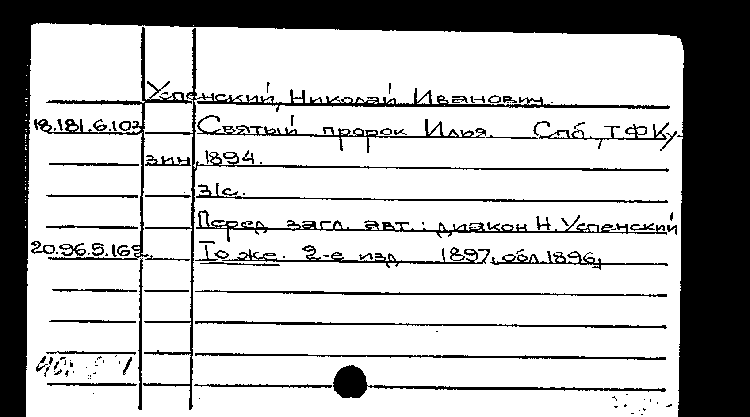 Успенский, Николай Иванович.
18.181.6.103 Святый пророк Илья. Спб., Т.Ф.Ку
зин, 1894.
31с.
Перед загл. авт.: диакон Н. Успенский
20.96.5.169. То же. 2-е изд 1897, [обл. 1896]